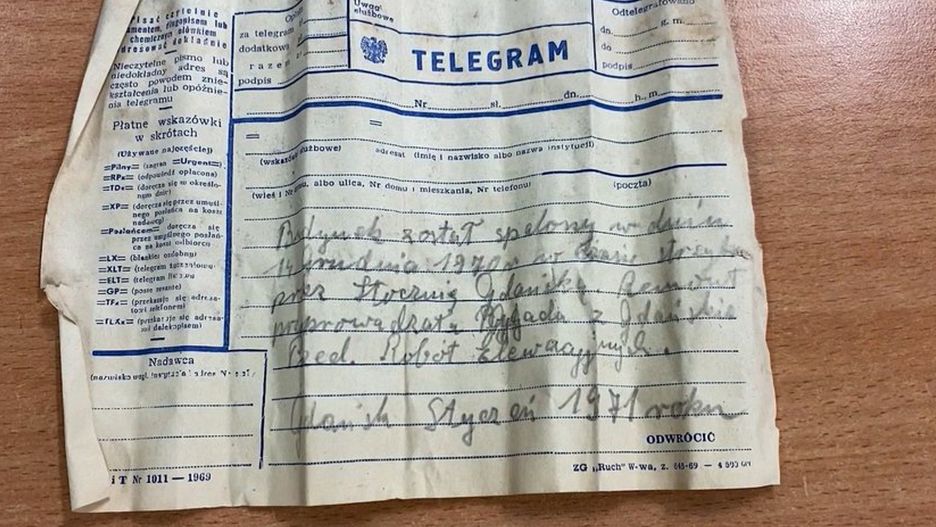 Pisać czytelnie
atramentem, długopisem lub
chemicznym ołówkiem
Adresować dokładnie
Nieczytelne pismo lub
niedokładny adres są
często powodem znie-
kształcenia lub opóźnie-
nia telegramu
Płatne wskazówki
w skrótach
(Używane najczęściej)
=Pilny= (zagran =Urgent=)
=RPx= (odpowiedź opłacona)
=TDx= (doręcza się w określo-
nym dniu)
=XP= (doręcza się przez umyśl-
nego posłańca na koszt
nadawcy)
=Posłańcem= doręcza się
przez umyślnego posłań-
ca na koszt odbiorcy
=LX= (blankiet ozdobny)
=XLT= (telegram
=ELT= (telegram
=GP= (poste restante)
=TFx= (przekazuje się adresa-
towi telefonem)
=TLXx= (przekazuje się adresa-
towi dalekopisem)
Nadawca
za telegram
dodatkowo
razem zł
podpis
Uwagi
służbowe
TELEGRAM
Odtelegrafowano
dn. g. m.
do
podpis
Nr sł. dn. h., m.
= =
(wskazówki służbowe) adresat (imię i nazwisko albo nazwa instytucji)
(wieś i Nr domu, albo ulica, Nr domu i mieszkania, Nr telefonu) (poczta)
Budynek został spalony w dniu
14 grudnia 1970 w czasie strajku
przez Stocznię Gdańską. Remont
przeprowadzała Brygada z Gdańskie
Przed. Robót Elewacyjnych.
Gdańsk Styczeń 1971 roku
ODWRÓCIĆ
iT Nr 1011 — 1969
ZG „Ruch" W-wa, z.